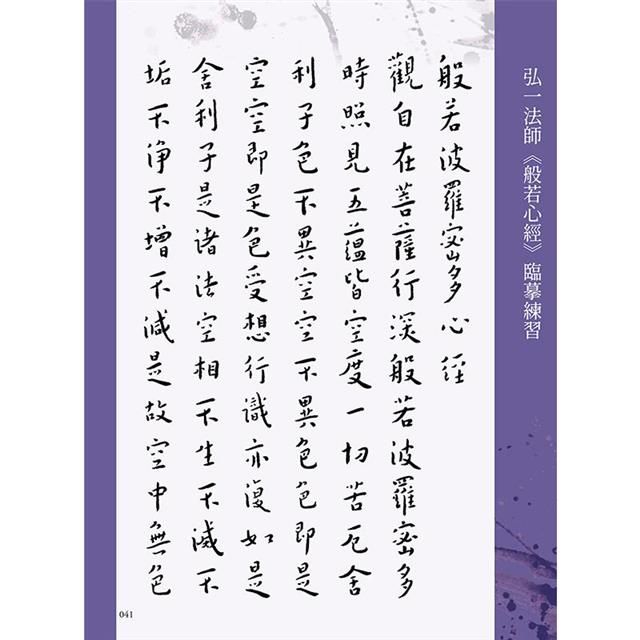 弘一法師《般若心經》臨摹練習
般若波羅蜜多心經
觀自在菩薩行深般若波羅蜜多
時照見五蘊皆空度一切苦厄舍
利子色不異空空不異色色即是
空空即是色受想行識亦復如是
舍利子是諸法空相不生不滅不
垢不淨不增不減是故空中無色
041